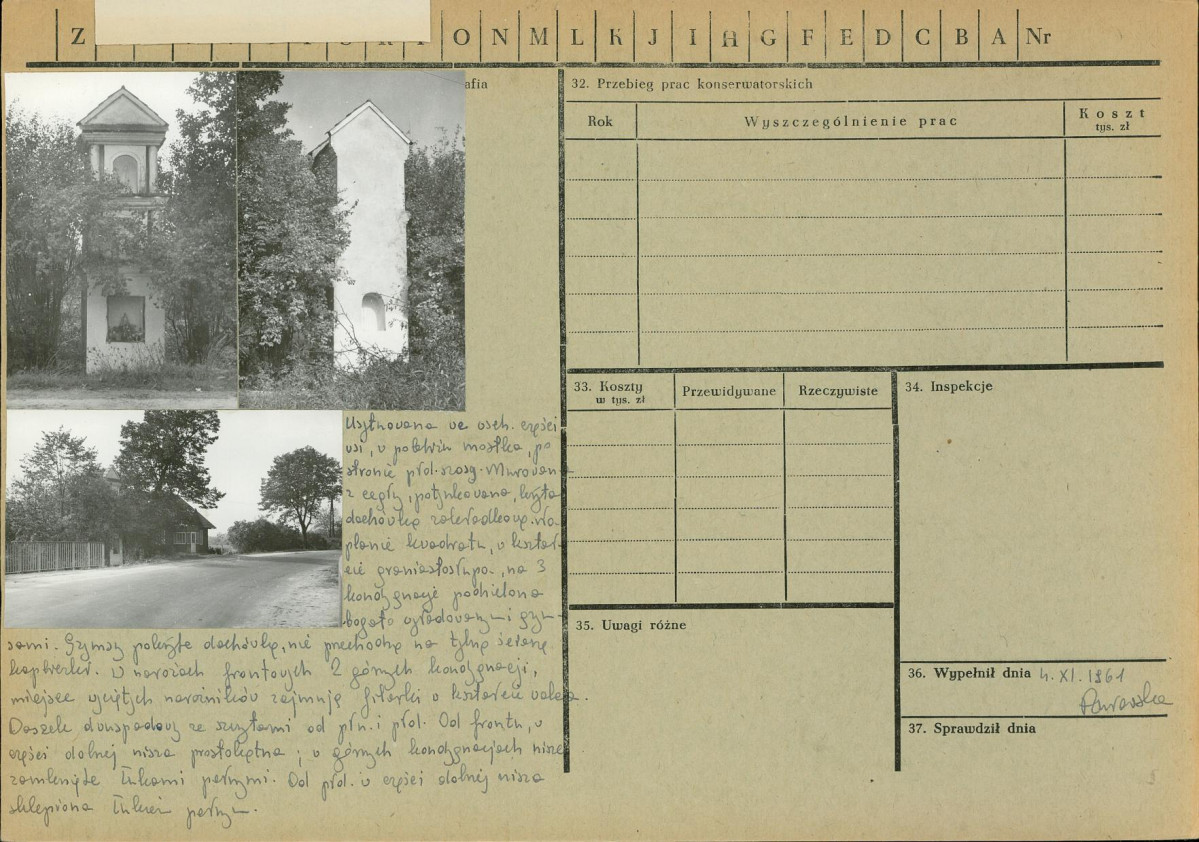 Z O N M L K J I H G F E D C B A Nr
afia
32. Przebieg prac konserwatorskich
Rok Wyszczególnienie prac Koszt
tys. zł
33. Koszty
w tys. zł
Przewidywane Rzeczywiste
34. Inspekcje
35. Uwagi różne
36. Wypełnił dnia 4.XI.1961
37. Sprawdził dnia
Usytuowana we wsch. części
wsi, w pobliżu mostka, po
stronie płd. szosy. Murowana
z cegły, potynkowana, kryta
dachówką zakładkową. Na
planie kwadratu, w kształ-
cie graniastosłupa, na 3
kondygnacje podzielona
bogato wyładowanymi gzym-
sami. Gzymsy pokryte dachówką, nie przechodzą na tylną ścianę
kapliczki. W narożach frontowych 2 górnych kondygnacji,
miejsce wyciętych narożników zajmują filarki w kształcie walca.
Daszek dwuspadowy ze szczytami od płn. i płd. Od frontu, w
części dolnej nisza prostokątna; w górnych kondygnacjach nisze
zamknięte łukami pełnymi. Od płd. w części dolnej nisza
sklepiona łukiem pełnym.